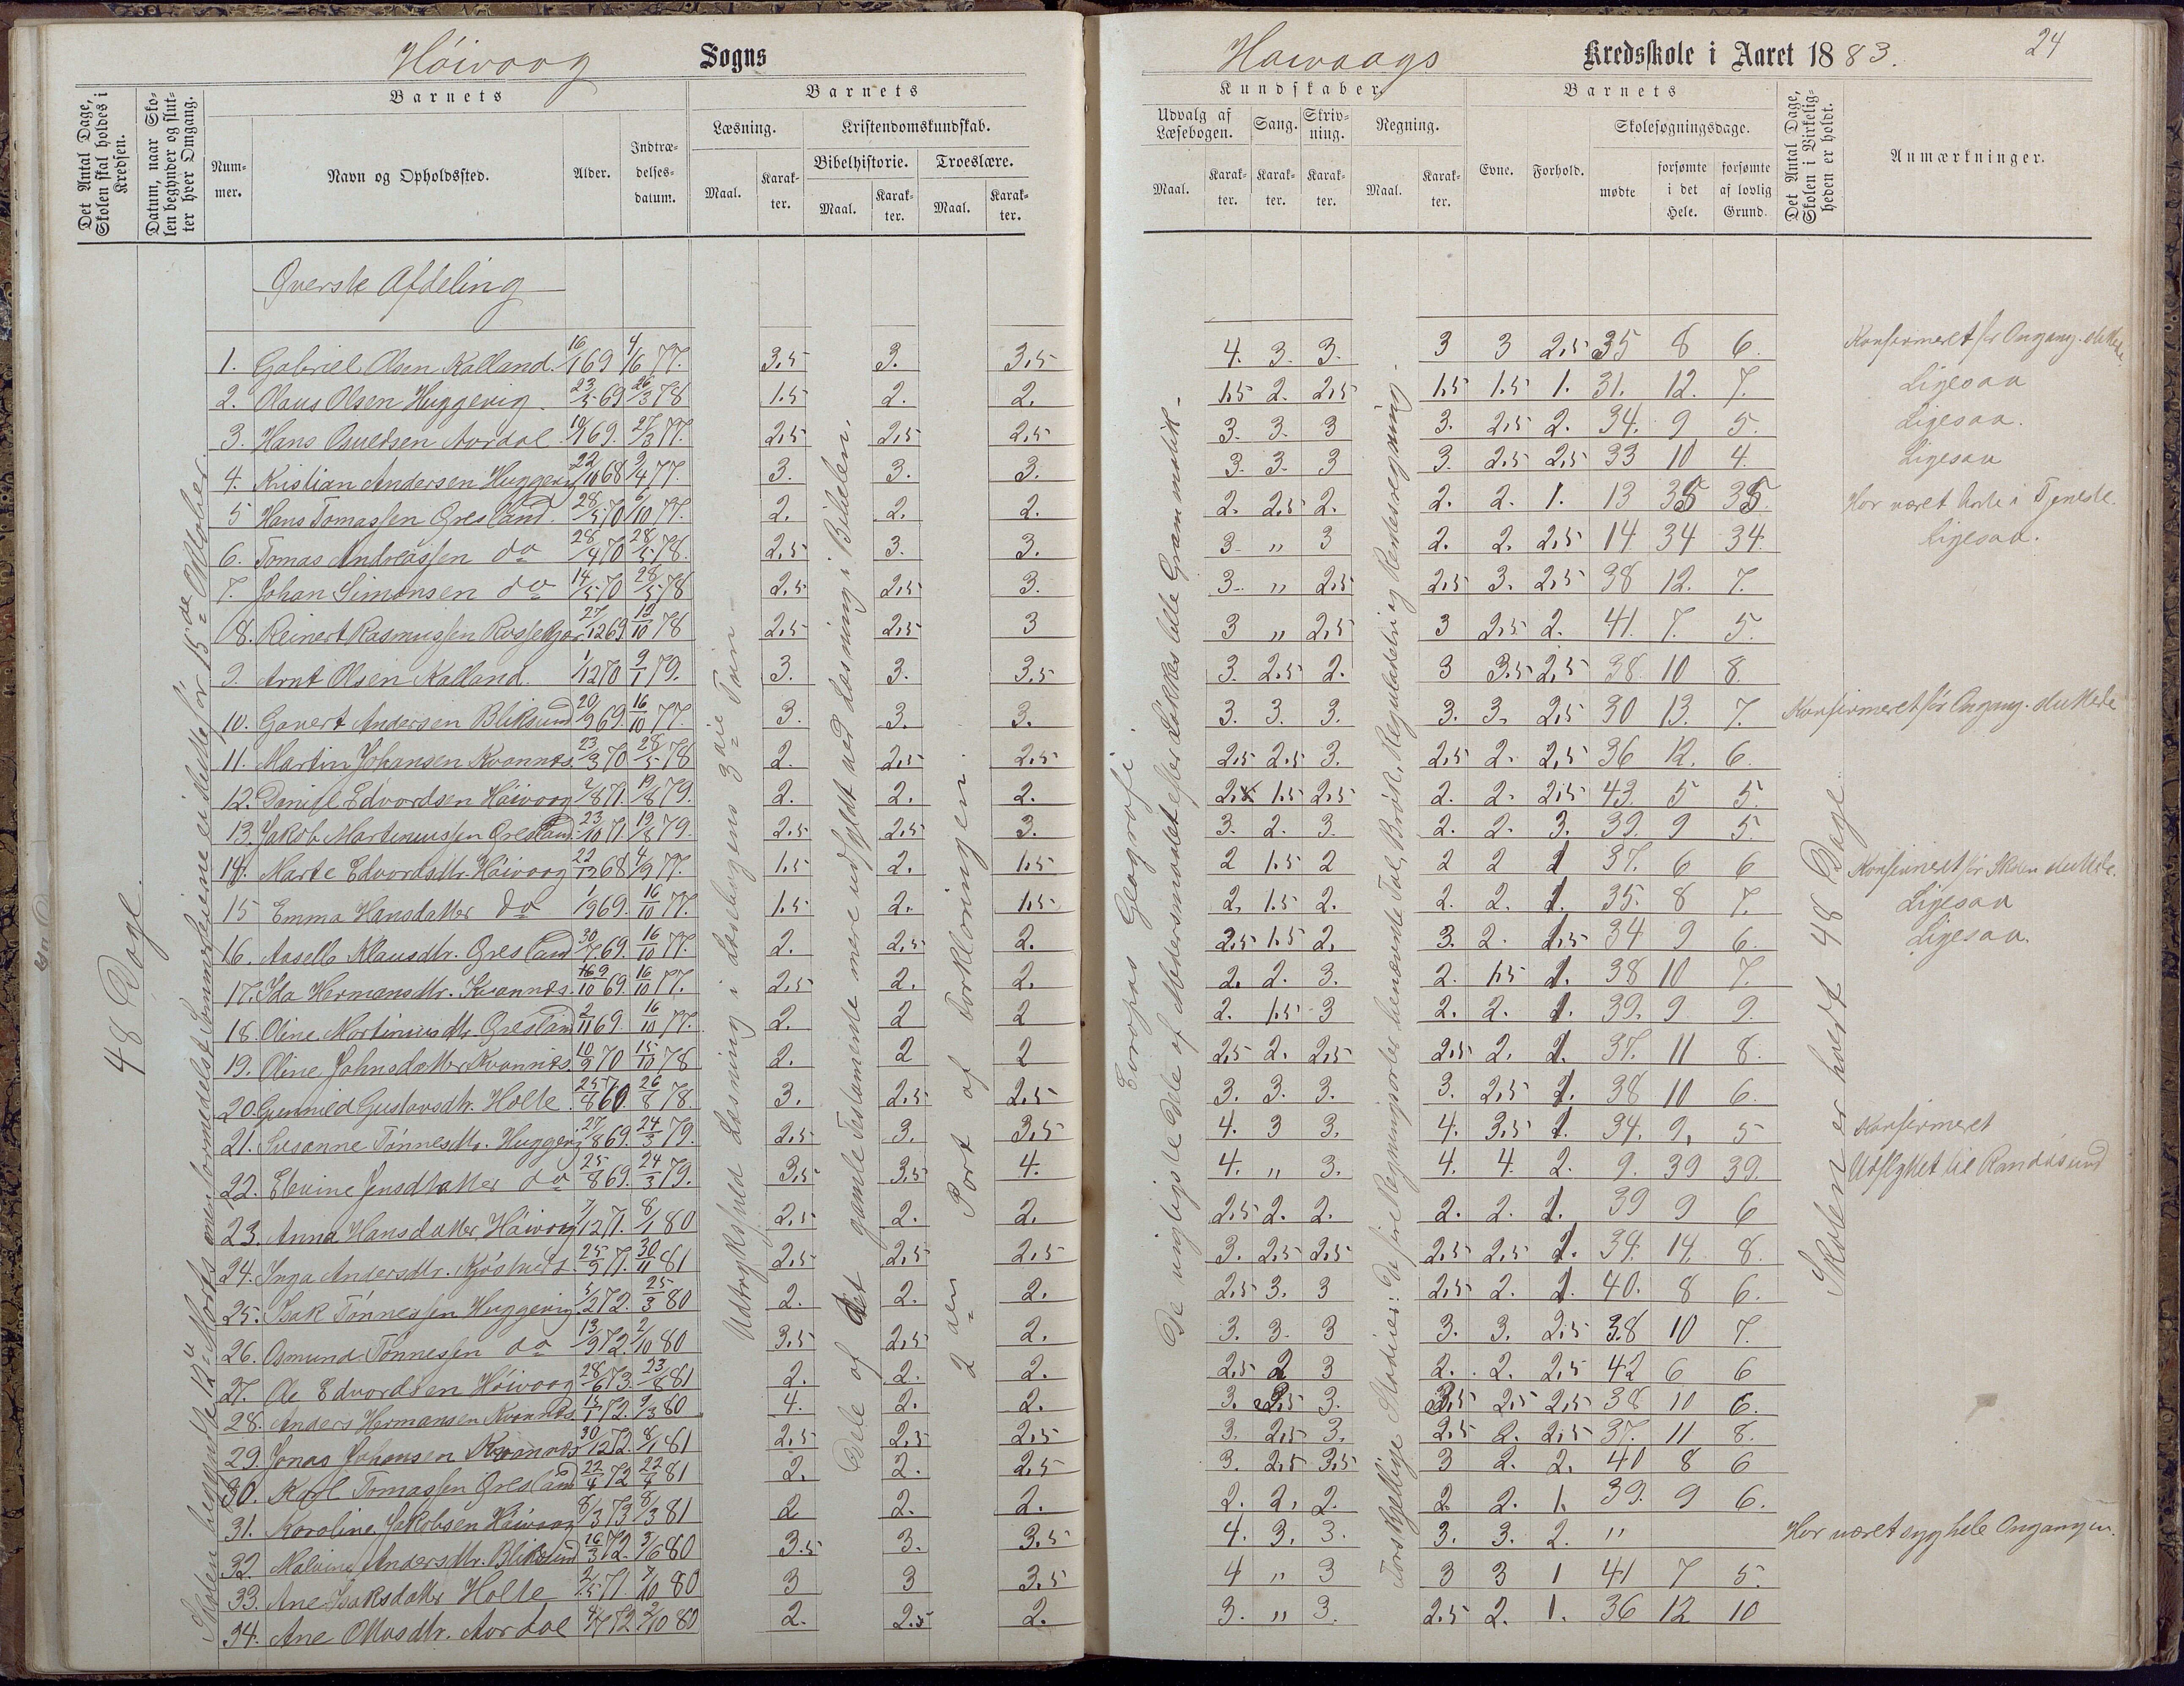 Höivaag Sogns
Det Antal Dage, Skolen skal holdes i Kredsen.
Datum, naar Skolen begynder og slutter hver Omgang.
Barnets
Nummer.
Navn og Opholdssted.
Alder.
Indtrædelsesdatum.
Barnets
Læsning.
Maal.
Karakter.
Kristendomskundskab.
Bibelhistorie.
Maal.
Karakter.
Troeslære.
Maal.
Karakter.
48 Dage.
Udtryksfuld Læsning i Læsebogens 3die Trin
Dele af det gamle Testamente mere udfyldt ved Læsning i Bibelen.
2den Part af Forklaringen.
Överste Afdeling
1. Gabriel Olsen Kalland. 16/1 69 4/6 77. 3,5 3. 3,5
2. Olaus Olsen Huggevig. 23/5 69 26/3 78 1.5 2. 2.
3. Hans Osuldsen Aardal 10/1 69. 27/3 77. 2,5 2,5 2,5
4. Kristian Andersen Huggevig 22/10 68 9/4 77. 3. 3. 3.
5 Hans Tomassen Öresland. 28/5 70 6/10 77. 2. 2. 2.
6. Tomas Andreassen do 28/4 70 28/5 78. 2,5 3. 3.
7. Johan Simonsen do 14/5 70 28/5 78 2,5 2,5 3.
8. Reinert Rasmussen 27/12 69 12/10 78 2,5 2,5 3
9. Arnt Olsen Kalland. 1/12 70 9/1 79. 3. 3. 3.5
10. Govert Andersen Bliksund 20/9 69. 16/10 77. 3. 3. 3.
11. Martin Johansen Kvannes. 23/3 70 28/5 78 2. 2,5 2,5
12. Daniel Edvardsen Höivaag 2/8 71. 19/8 79. 2. 2. 2.
13. Jakob Martinussen Öresland 23/10 71. 19/8 79. 2.5 2.5 3.
14. Marte Edvardsdtr. Höivaag 22/12 68 4/9 77. 1.5 2. 1.5
15 Emma Hansdatter do 1/9 69. 16/10 77. 1.5 2. 1.5
16. Aaselb Klausdtr. Öresland 30/7 69. 16/10 77. 2. 2,5 2.
17. Ida Hermansdtr. Kvannes. 9/10 69. 16/10 77. 2,5 2. 2.
18. Oline Martinusdtr Öresland 2/11 69. 16/10 77. 2. 2 2
19. Oline Johnsdatter Kvannes. 10/9 70 15/10 78 2. 2 2
20. Gunnild Gustavsdtr. Holte. 26/8 78. 3. 2.5 2.5
21. Susanne Tönnesdtr. Huggevig 27/8 69. 24/3 79. 2,5 3. 3,5
22. Elevine Jensdatter do 25/8 69. 24/3 79. 3,5 3,5 4.
23. Anna Hansdatter Höivaag 7/12 71. 8/1 80 2,5 2. 2.
24. Inga Andersdtr. 25/9 71. 30/11 81 2,5 2,5 2,5
25. Isak Tönnessen Huggevig 5/2 72. 25/3 80 2. 2. 2.
26. Osmund Tönnessen do 13/9 72. 2/10 80 3,5 2,5 2.
27. Ole Edvardsen Höivaag 28/6 73. 23/8 81 2. 2. 2.
28. Anders Hermansen Kvannes 9/3 80 4. 2. 2.
29. Jonas Johansen Kvannes 30/12 72. 8/1 81 2,5 2,5 2,5
30. Karl Tomassen Öresland 22/4 72 22/4 81 2. 2. 2,5
31. Karoline Jakobsen Höivaag 8/3 73 8/3 81 2 2. 2.
32. Malvine Andersdtr. Bliksund 16/3 72. 3/6 80 3.5 3. 3,5
33. Ane Isaksdatter Holte 2/5 71. 7/10 80 3 3 3,5
34. Ane Olausdtr. Aardal 2/10 80 2. 2.5 2.
Höivaags Kredsskole i Aaret 1883. 24
Kundskaber.
Udvalg af Læsebogen.
Maal.
Karakter.
Sang.
Karakter.
Skrivning.
Karakter.
Regning.
Maal.
Karakter.
Barnets
Evne.
Forhold.
Skolesøgningsdage.
mødte
forsømte i det Hele.
forsømte af lovlig Grund.
Det Antal Dage, Skolen i Virkeligheden er holdt.
Anmærkninger.
Europas Geografi.
De vigtigste Dele af Modersmaalet efter Løkkes lille Grammatik.
Forskjellige Stadier: De fire Regningsarter i benævnte Tal, Brøk, Reguladetri og Rentesregning.
Skolen er holdt 48 Dage
4. 3. 3. 3 3 2,5 35 8 6. Konfirmeret før Omgang. sluttede
1.5 2. 2,5 1.5 1.5 1. 31. 12. 7. Ligesaa
3. 3. 3 3. 2,5 2. 34. 9 5. Ligesaa.
3. 3. 3 3. 2.5 2,5 33 10 4. Ligesaa
2. 2.5 2. 2. 2. 1. 13 35 35. Har været borte i Tjeneste.
3. " 3 2. 2. 2,5 14 34 34. Ligesaa.
3. " 2,5 2,5 3. 2,5 38 12. 7.
3 " 2,5 3 2,5 2. 41. 7. 5.
3. 2.5 2. 3 3.5 2,5 38. 10 8.
3. 3. 3. 3. 3. 2,5 30 13. 7. Konfirmeret før Omgang. sluttede
2,5 2.5 3. 2,5 2. 2,5 36 12. 6.
2. 1.5 2.5 2. 2. 2,5 43. 5 5.
3. 2. 3. 2. 2. 3. 39. 9 5.
2 1.5 2 2 2 1 37. 6 6 Konfirmeret før Skolen sluttede.
2. 1.5 2. 2. 2. 1. 35. 8 7. Ligesaa
2.5 1.5 2. 3. 2. 1.5 34 9 6. Ligesaa.
2. 2. 3. 2. 1.5 1. 38 10 7.
2. 1.5 3 2. 2. 1. 39. 9. 9.
2,5 2. 2,5 2,5 2. 1. 37. 11 8.
3. 3. 3. 3. 2,5 1. 38 10 6.
4. 3 3. 4. 3,5 1. 34. 9. 5 Konfirmeret
4. " 3. 4. 4. 2. 9. 39 39. Udflyttet til Randøsund
2.5 2. 2. 2. 2. 1. 39 9 6
3. 2,5 2,5 2,5 2,5 1. 34. 14. 8.
2,5 3. 3 2,5 2. 1. 40. 8 6.
3. 3. 3 3. 3. 2,5 38 10 7.
2,5 2 3 2. 2. 2,5 42 6 6
3. 2,5 3. 3,5 2,5 2,5 38 10 6.
3. 2,5 3. 2,5 2. 2,5 37. 11 8.
3. 2,5 3,5 3 2. 2. 40 8 6
2. 2. 2. 2 2. 1. 39. 9 6.
4. 3. 3. 3. 3. 2. " Har været syg hele Omgangen.
4 " 3 3 3 1 41 7 5.
3. " 3. 2.5 2. 1. 36 12 10